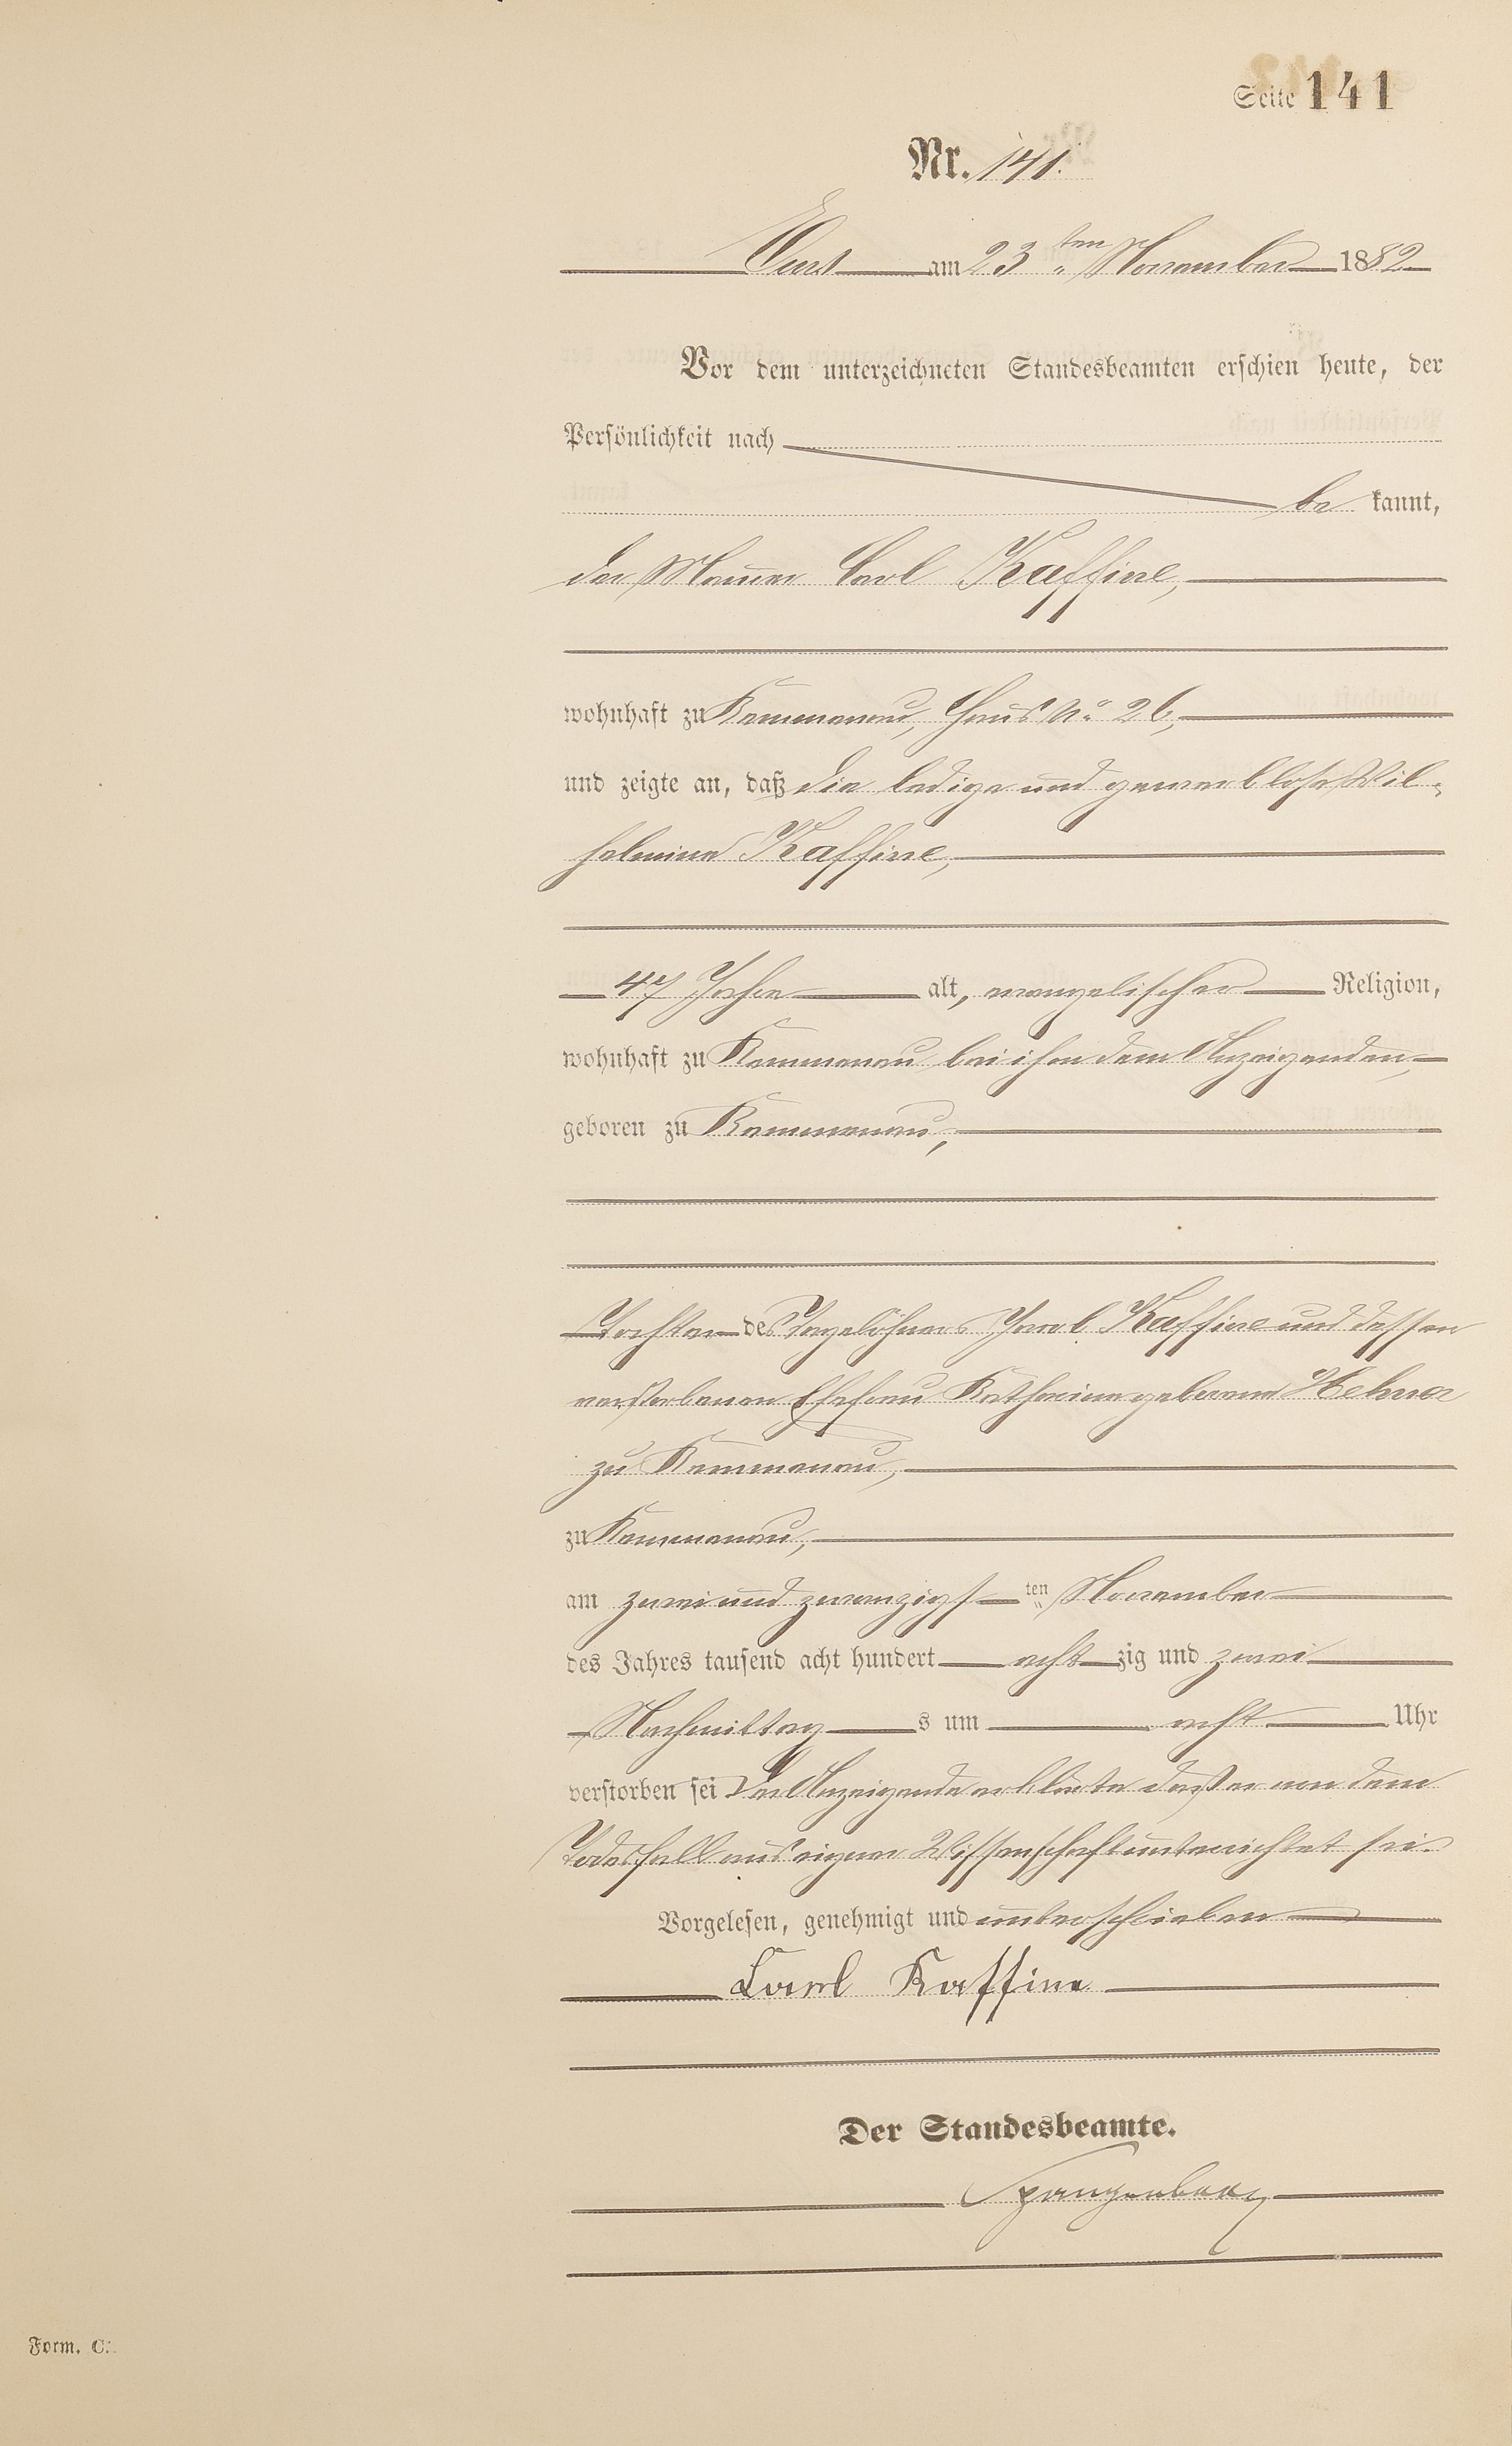 Seite 141
Nr. 141.
Ems am 23ten November 1882
Vor dem unterzeichneten Standesbeamten erschien heute, der
Persönlichkeit nach
be kannt,
der Maurer Carl Kaffine,
wohnhaft zu Kemmenau, Haus No 26,
und zeigte an, daß die ledige und gewerblose Wil-
helmine Kaffine,
47 Jahre alt, evangelischer Religion,
wohnhaft zu Kemmenau bei ihm dem Anzeigenden,
geboren zu Kemmenau,
Tochter des Tagelöhners Jacob Kaffine und dessen
verstorbenen Ehefrau Katharine geborene Hehner
zu Kemmenau,
zu Kemmenau,
am zwei und zwanzigsten November
des Jahres tausend acht hundert acht zig und zwei
Nachmittags um acht Uhr
verstorben sei Der Anzeigende erklärte daß er von dem
Todesfall aus eigener Wissenschaft unterrichtet sei.
Vorgelesen, genehmigt und unterschrieben
Carl Kaffine
Der Standesbeamte.
Spangenberg
Form. C.